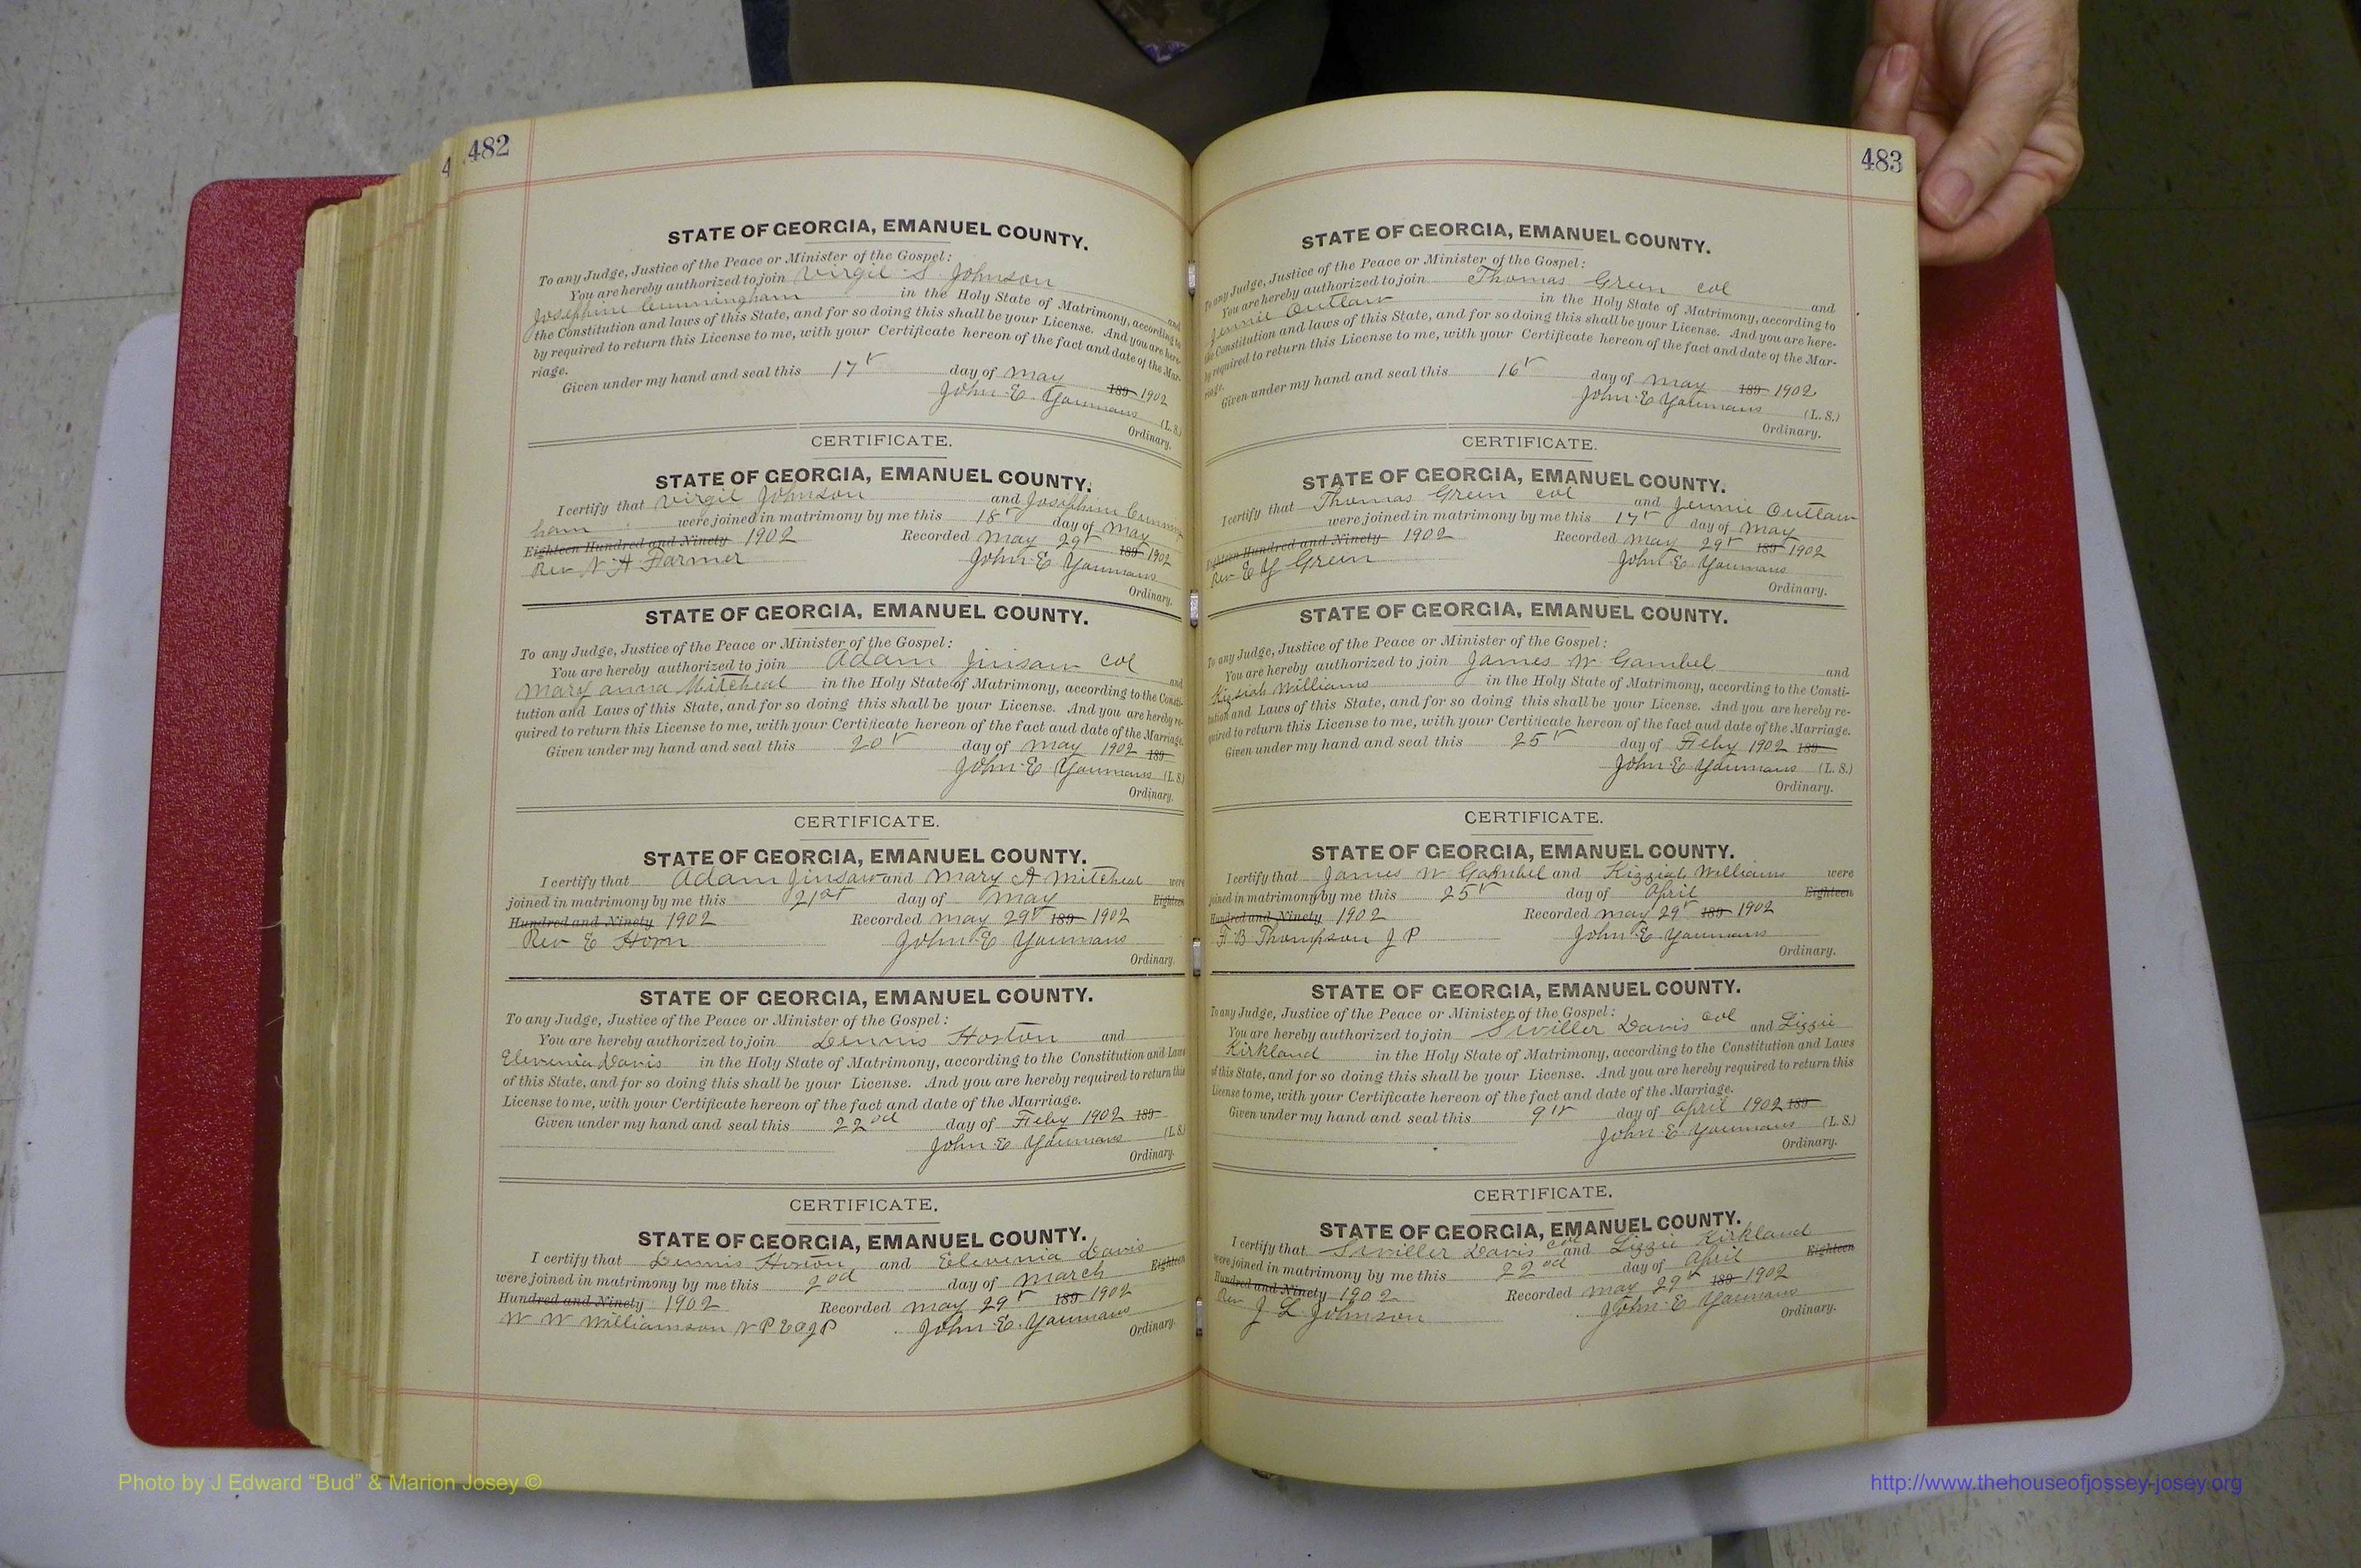 4 482
STATE OF GEORGIA, EMANUEL COUNTY.
To any Judge, Justice of the Peace or Minister of the Gospel:
You are hereby authorized to join Virgil S. Johnson and
Josephine Cunningham in the Holy State of Matrimony, according to
the Constitution and laws of this State, and for so doing this shall be your License. And you are here-
by required to return this License to me, with your Certificate hereon of the fact and date of the Mar-
riage.
Given under my hand and seal this 17 day of May 189 1902
John E. Youmans (L. S.)
Ordinary.
CERTIFICATE.
STATE OF GEORGIA, EMANUEL COUNTY.
I certify that Virgil Johnson and Josephine Cunning
ham were joined in matrimony by me this 18 day of May
Eighteen Hundred and Ninety 1902 Recorded May 29 189 1902
Rev N A Farmer John E Youmans
Ordinary.
STATE OF GEORGIA, EMANUEL COUNTY.
To any Judge, Justice of the Peace or Minister of the Gospel:
You are hereby authorized to join Adam Jinsaw Col and
Mary Anna Mitcheal in the Holy State of Matrimony, according to the Consti-
tution and Laws of this State, and for so doing this shall be your License. And you are hereby re-
quired to return this License to me, with your Certificate hereon of the fact aud date of the Marriage.
Given under my hand and seal this 20 day of May 1902 189
John E Youmans (L. S.)
Ordinary.
CERTIFICATE.
STATE OF GEORGIA, EMANUEL COUNTY.
I certify that Adam Jinsaw and Mary A Mitcheal were
joined in matrimony by me this 21st day of May Eighteen
Hundred and Ninety 1902 Recorded May 29 189 1902
Rev E Horn John E Youmans
Ordinary.
STATE OF GEORGIA, EMANUEL COUNTY.
To any Judge, Justice of the Peace or Minister of the Gospel:
You are hereby authorized to join Dennis Hoston and
Elevenia Davis in the Holy State of Matrimony, according to the Constitution and Laws
of this State, and for so doing this shall be your License. And you are hereby required to return this
License to me, with your Certificate hereon of the fact and date of the Marriage.
Given under my hand and seal this 22nd day of Feby 1902 189
John E Youmans (L. S.)
Ordinary.
CERTIFICATE.
STATE OF GEORGIA, EMANUEL COUNTY.
I certify that Dennis Hoston and Elevenia Davis
were joined in matrimony by me this 2nd day of March Eighteen
Hundred and Ninety 1902 Recorded May 29 189 1902
W W Williamson N P E O J P John E. Youmans
Ordinary.
483
STATE OF GEORGIA, EMANUEL COUNTY.
To any Judge, Justice of the Peace or Minister of the Gospel:
You are hereby authorized to join Thomas Green Col and
Jennie Outlaw in the Holy State of Matrimony, according to
the Constitution and laws of this State, and for so doing this shall be your License. And you are here-
by required to return this License to me, with your Certificate hereon of the fact and date of the Mar-
riage.
Given under my hand and seal this 16 day of May 189 1902
John E Youmans (L. S.)
Ordinary.
CERTIFICATE.
STATE OF GEORGIA, EMANUEL COUNTY.
I certify that Thomas Green Col and Jennie Outlaw
were joined in matrimony by me this 17 day of May
Eighteen Hundred and Ninety 1902 Recorded May 29 189 1902
Rev E Y Green John E Youmans
Ordinary.
STATE OF GEORGIA, EMANUEL COUNTY.
To any Judge, Justice of the Peace or Minister of the Gospel:
You are hereby authorized to join James W Gambel and
Kizziah Williams in the Holy State of Matrimony, according to the Consti-
tution and Laws of this State, and for so doing this shall be your License. And you are hereby re-
quired to return this License to me, with your Certificate hereon of the fact aud date of the Marriage.
Given under my hand and seal this 25 day of Feby 1902 189
John E Youmans (L. S.)
Ordinary.
CERTIFICATE.
STATE OF GEORGIA, EMANUEL COUNTY.
I certify that James W Gambel and Kizziah Williams were
joined in matrimony by me this 25 day of April Eighteen
Hundred and Ninety 1902 Recorded May 29 189 1902
F B Thompson J P John E Youmans
Ordinary.
STATE OF GEORGIA, EMANUEL COUNTY.
To any Judge, Justice of the Peace or Minister of the Gospel:
You are hereby authorized to join Swiller Davis Col and Lizzie
Kirkland in the Holy State of Matrimony, according to the Constitution and Laws
of this State, and for so doing this shall be your License. And you are hereby required to return this
License to me, with your Certificate hereon of the fact and date of the Marriage.
Given under my hand and seal this 9 day of April 1902 189
John E Youmans (L. S.)
Ordinary.
CERTIFICATE.
STATE OF GEORGIA, EMANUEL COUNTY.
I certify that Swiller Davis Col and Lizzie Kirkland
were joined in matrimony by me this 22nd day of April Eighteen
Hundred and Ninety 1902 Recorded May 29 189 1902
Rev J L Johnson John E Youmans
Ordinary.
Photo by J Edward “Bud” & Marion Josey ©
http://www.thehouseofjossey-josey.org